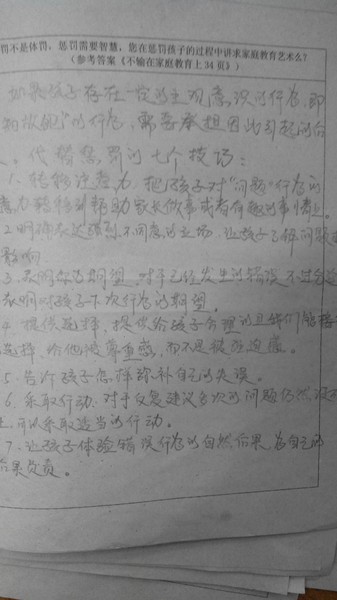 罚不是体罚，惩罚需要智慧，您在惩罚孩子的过程中讲求家庭教育艺术么？
（参考答案《不输在家庭教育上34页》）
如果孩子存在一定的主观意识的行为，即
的行为，需要承担因此引起的后
。代替惩罚的七个技巧：
1、转移注意力，把孩子对“问题”行为的
意力转移到帮助家长做事或者有趣的事情上。
2.明确表达强烈不同意的立场，让孩子了解问题
影响
3.表明你的期望，对于已经发生的错误，不过
表明对孩子下次行为的期望。
4.提供选择，提供给孩子合理的且我们能接
选择，给他被尊重感，而不是被
5.告诉孩子怎样弥补自己的失误。
6.采取行动，对于反复建议多次的问题仍然没
可以采取适当的行动。
7.让孩子体验错误行为的自然后果，为自己的
后果负责。